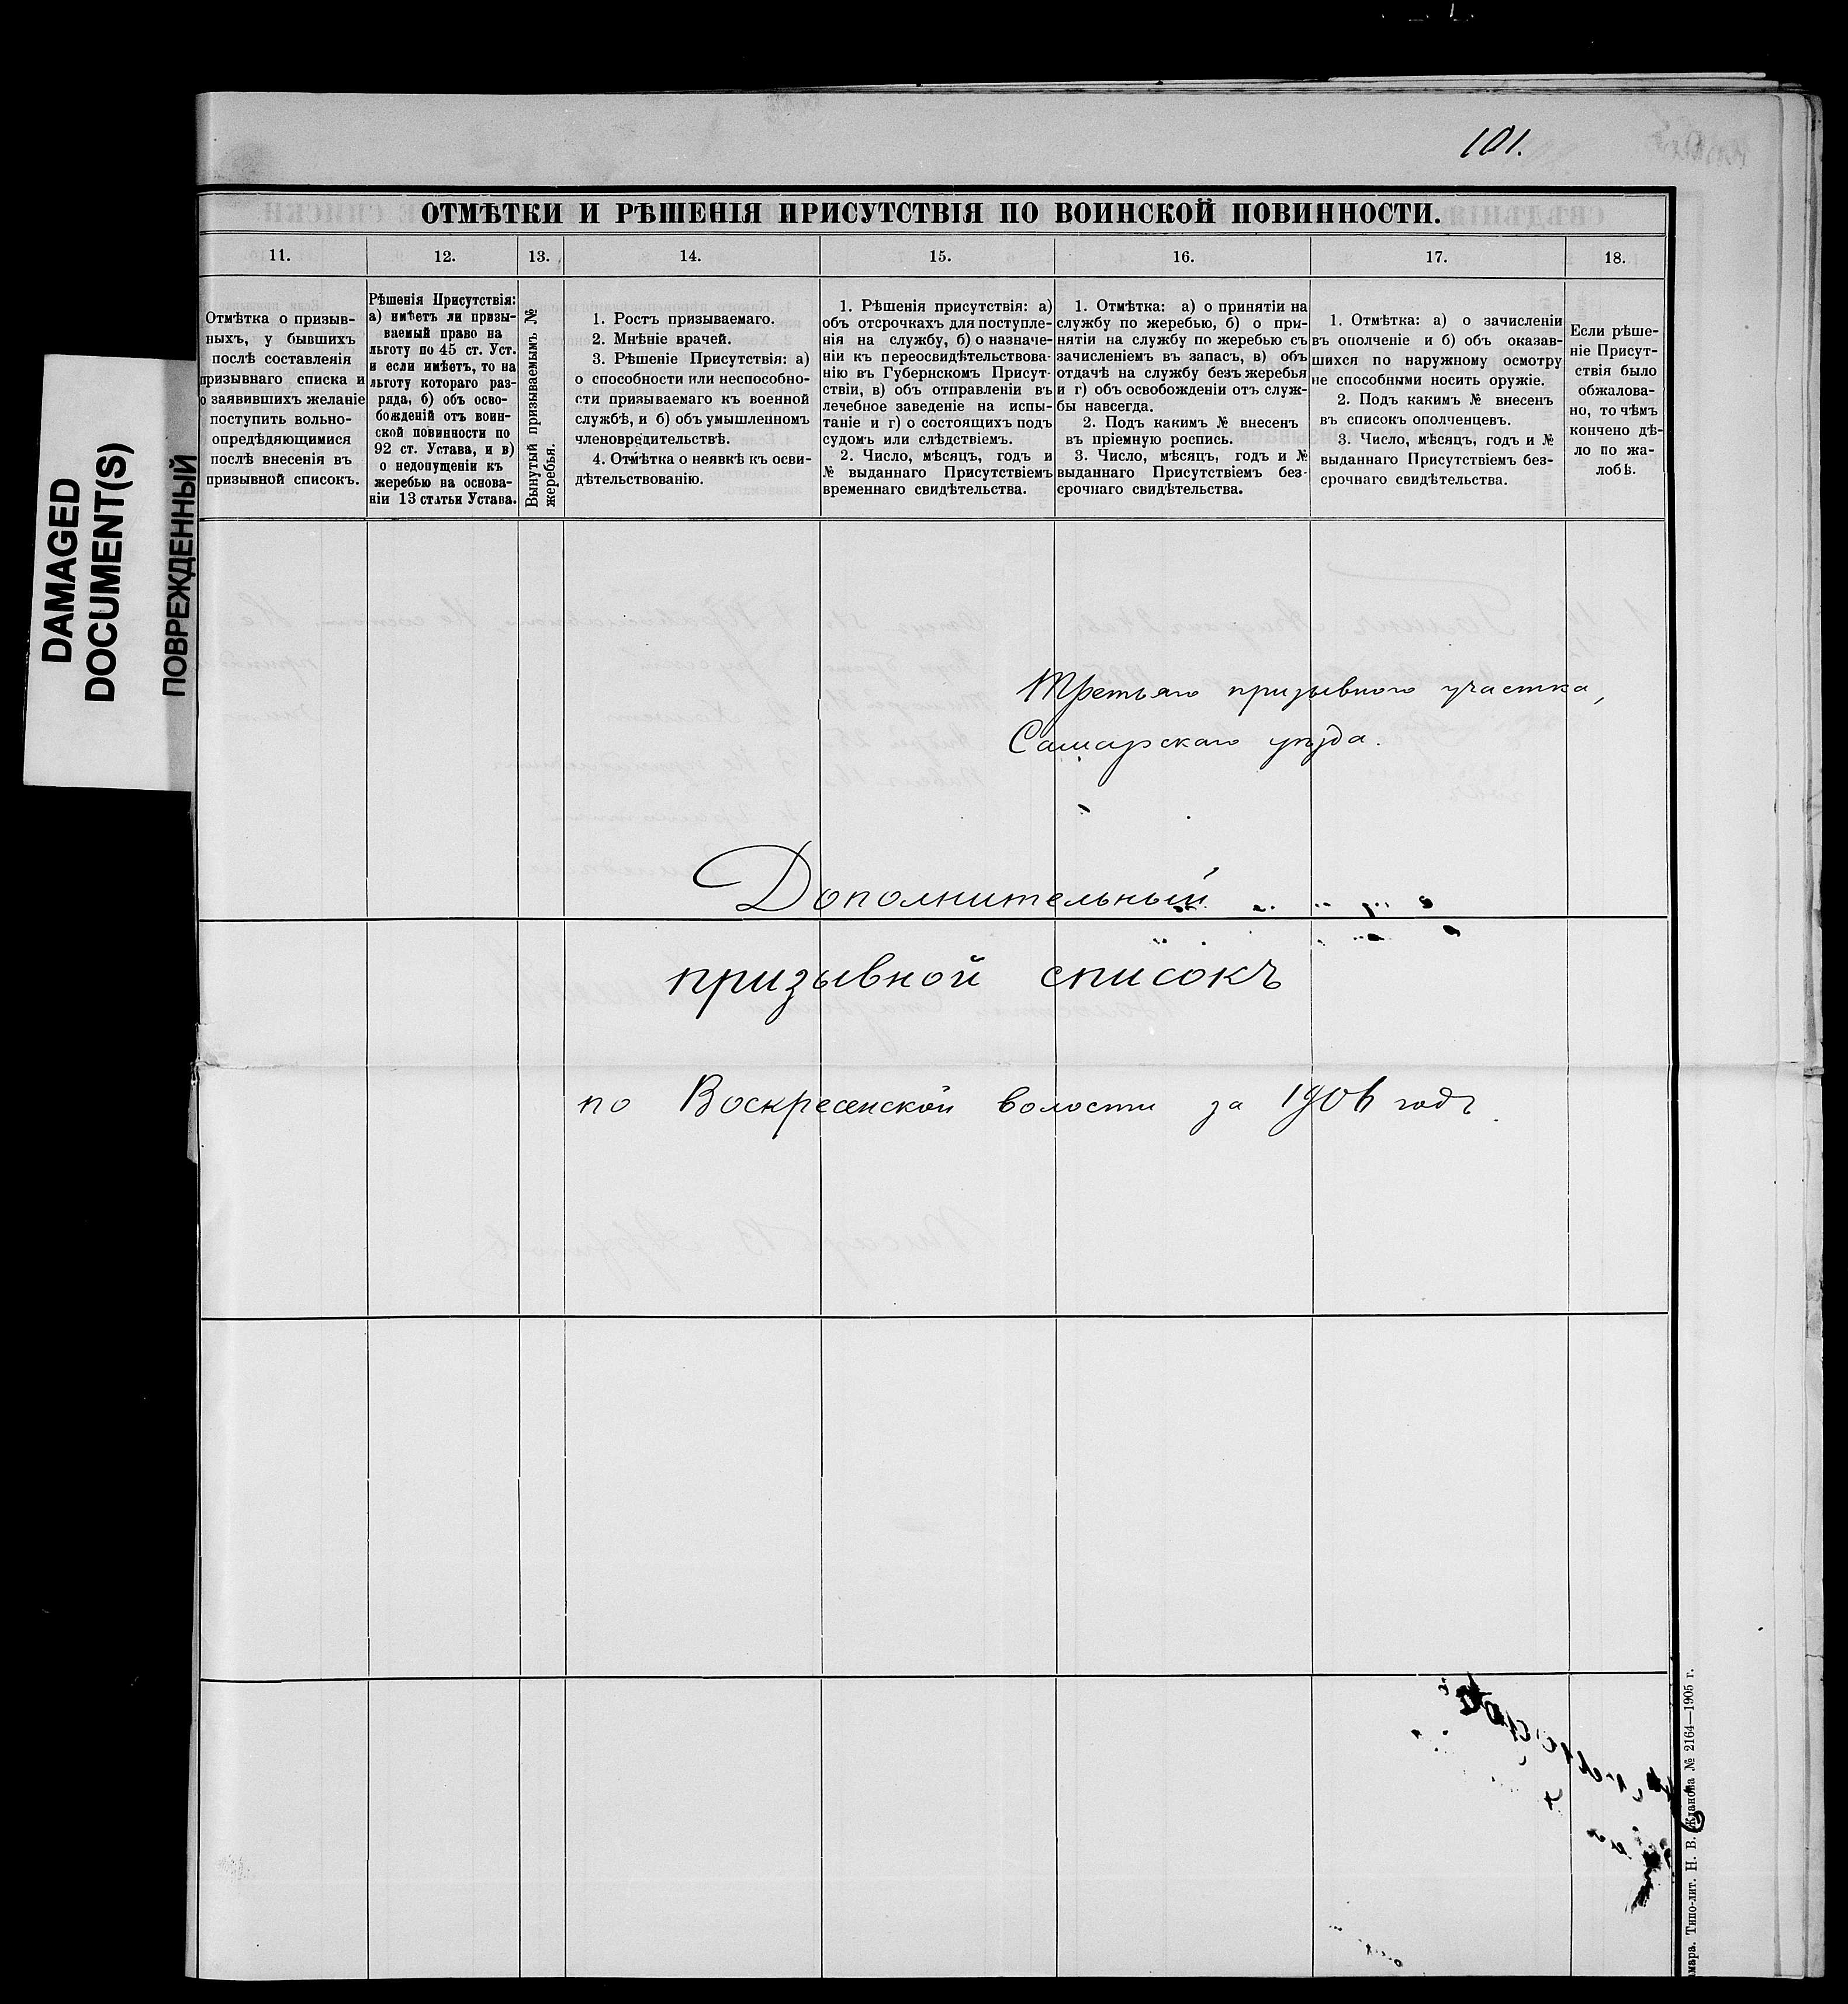 101.
DAMAGED
DOCUMENT(S)
ПОВРЕЖДЕННЫЙ
ОТМѢТКИ И РѢШЕНІЯ ПРИСУТСТВІЯ ПО ВОИНСКОЙ ПОВИННОСТИ.
11.
12.
13.
14.
15.
16.
17.
18.
Отмѣтка о призыв-
ныхъ, у бывшихъ
послѣ составленія
призывнаго списка и
о заявившихъ желаніе
поступить вольно-
опредѣляющимися
послѣ внесенія въ
призывной списокъ.
Рѣшенія Присутствія:
а) имѣетъ ли призы-
ваемый право на
льготу по 45 ст. Уст.
и если имѣетъ, то на
льготу котораго раз-
ряда, б) объ осво-
божденій отъ воин-
ской повинности по
92 ст. Устава, и в)
о недопущеніи къ
жеребью на основа-
ніи 13 статьи Устава.
Вынутый призываемымъ №
жеребья.
1. Ростъ призываемаго.
2. Мнѣніе врачей.
3. Рѣшеніе Присутствія: а)
о способности или неспособно-
сти призываемаго къ военной
службѣ, и б) объ умышленномъ
членовредительствѣ.
4. Отмѣтка о неявкѣ къ осви-
дѣтельствованію.
1. Рѣшенія присутствія: а)
объ отсрочкахъ для поступле-
нія на службу, б) о назначе-
ніи къ переосвидѣтельствова-
нію въ Губернскомъ Присут-
ствіи, в) объ отправленіи въ
лечебное заведеніе на испы-
таніе и г) о состоящихъ подъ
судомъ или слѣдствіемъ.
2. Число, мѣсяцъ, годъ и
№ выданнаго Присутствіемъ
временнаго свидѣтельства.
1. Отмѣтка: а) о принятіи на
службу по жеребью, б) о при-
нятіи на службу по жеребью съ
зачисленіемъ въ запасъ, в) объ
отдачѣ на службу безъ жеребья
и г) объ освобожденіи отъ служ-
бы навсегда.
2. Подъ какимъ № внесенъ
въ пріемную роспись.
3. Число, мѣсяцъ, годъ и №
выданнаго Присутствіемъ без-
срочнаго свидѣтельства.
1. Отмѣтка: а) о зачисленіи
въ ополченіе и б) объ оказав-
шихся по наружному осмотру
не способными носить оружіе.
2. Подъ какимъ № внесенъ
въ списокъ ополченцевъ.
3. Число, мѣсяцъ, годъ и №
выданнаго Присутствіемъ без-
срочнаго свидѣтельства.
Если рѣше-
ніе Присут-
ствія было
обжалова-
но, то чѣмъ
кончено дѣ-
ло по жа-
лобѣ.
Третьяго призывного участка,
Самарскаго уѣзда.
Дополнительный
призывной списокъ
по Воскресенской волости за 1906 годъ.
амара. Типо-лит. Н. В. Жданова № 2164—1905 г.